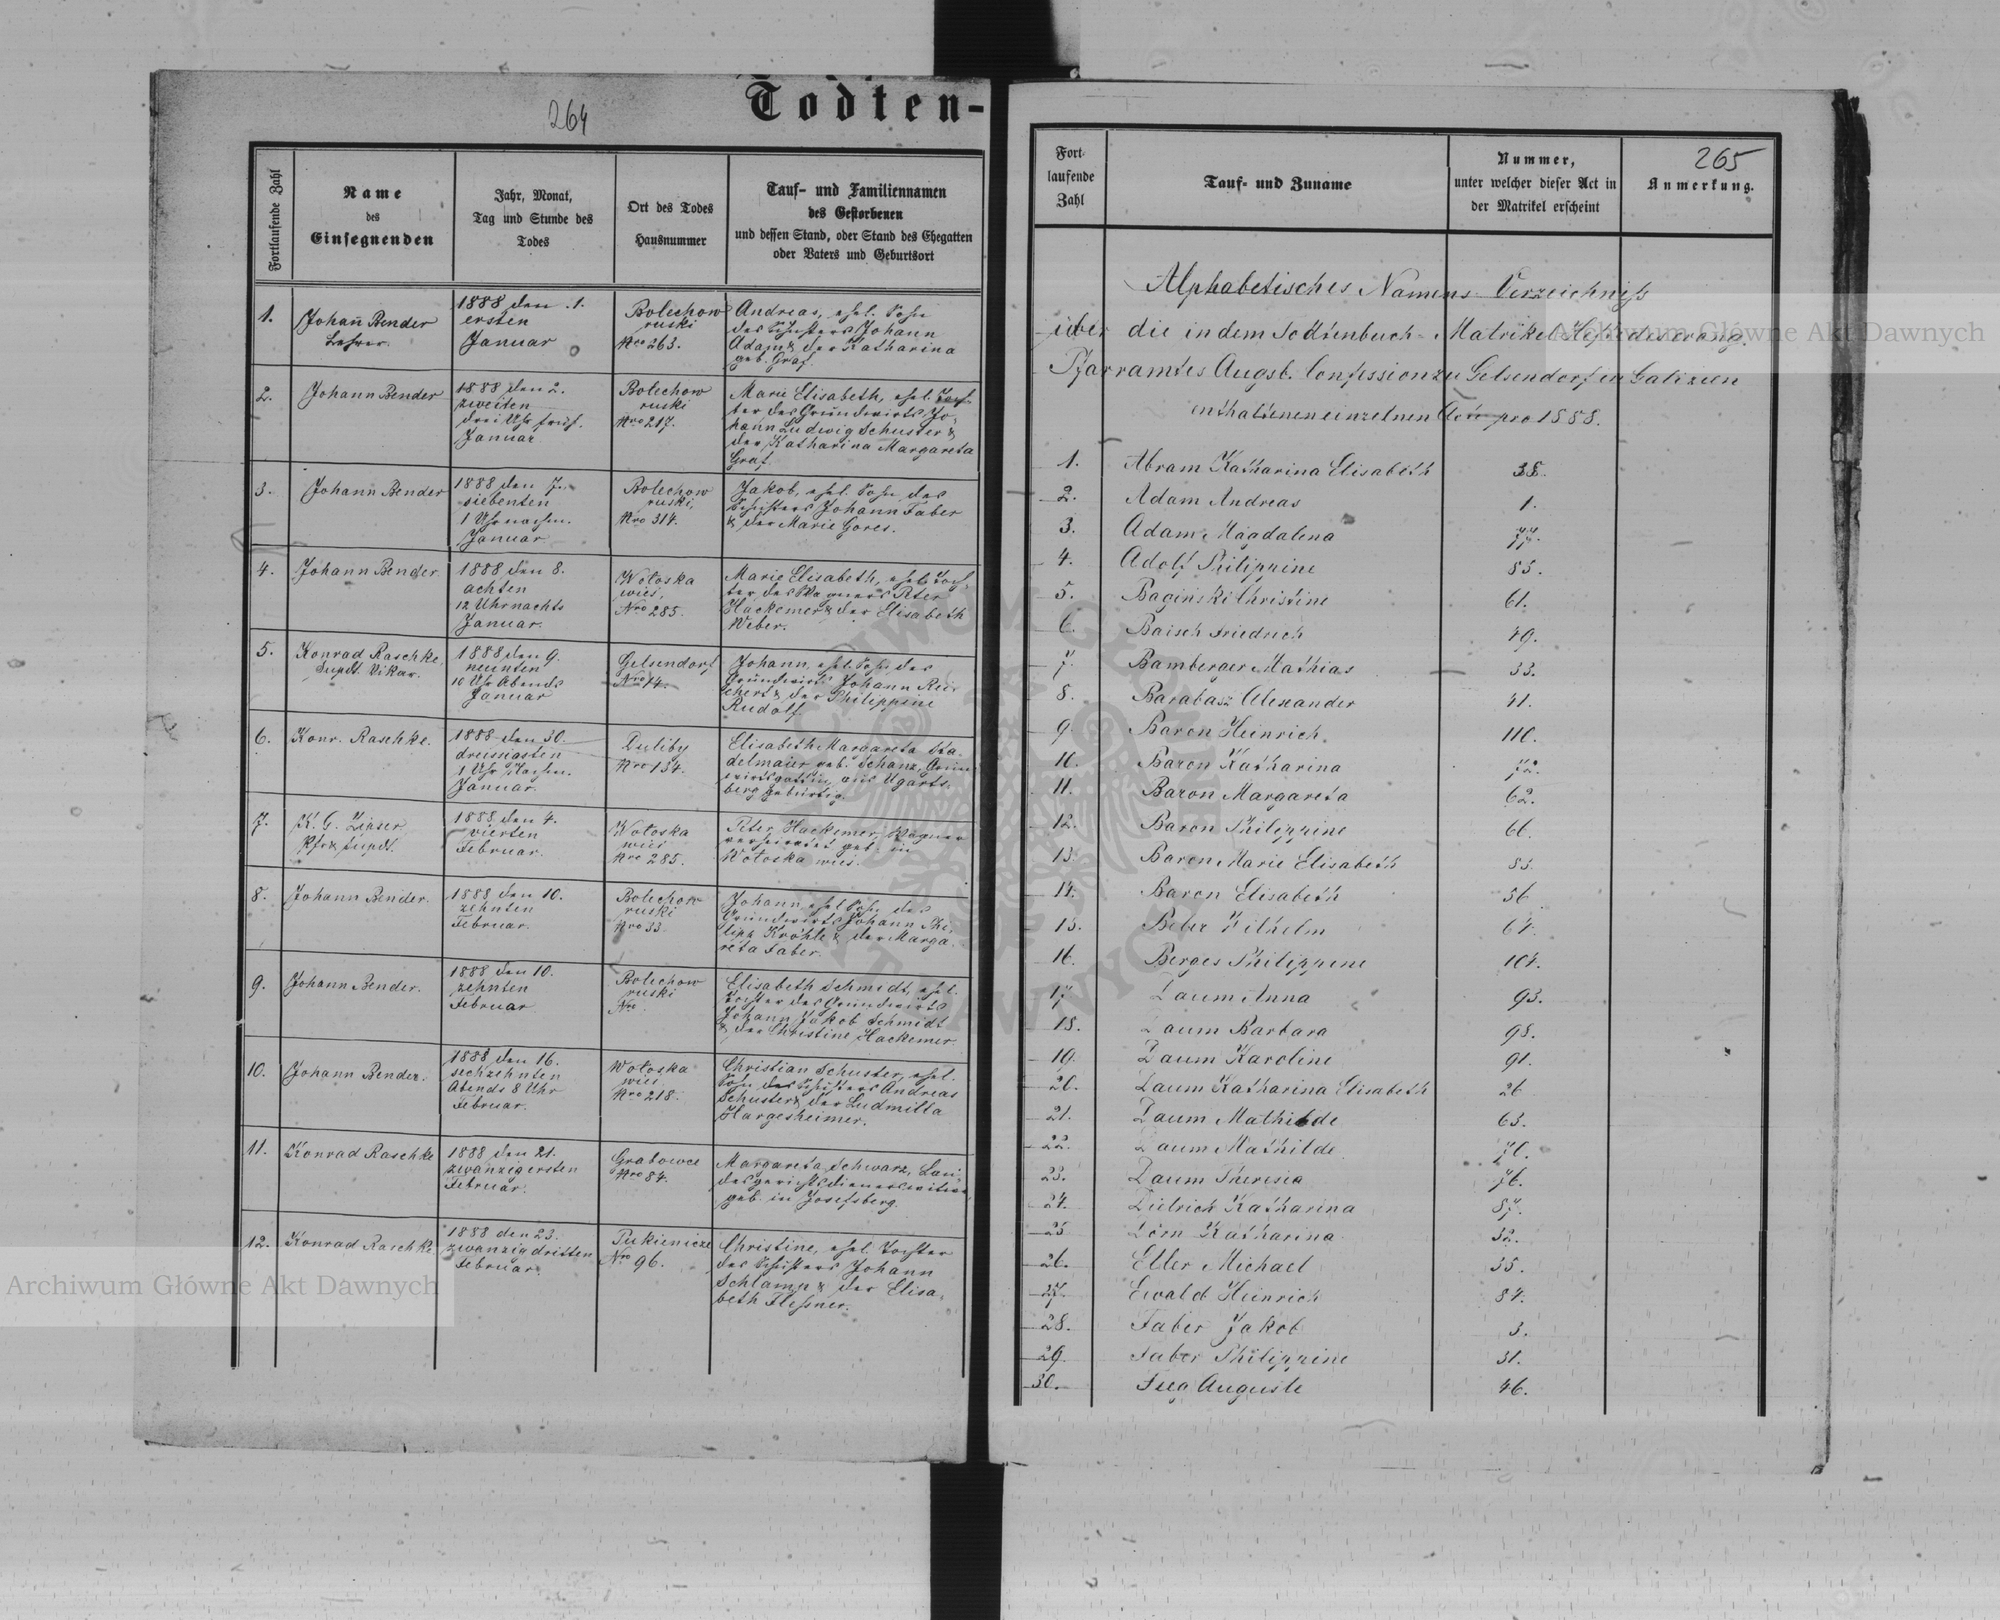 264
Todten-
Fortlaufende Zahl
Name
des
Einsegnenden
Jahr, Monat,
Tag und Stunde des
Todes
Ort des Todes
Hausnummer
Tauf- und Familiennamen
des Gestorbenen
und dessen Stand, oder Stand des Ehegatten
oder Vaters und Geburtsort
1.
Johann Bender
Lehrer.
1888 den 1.
ersten
Januar
Bolechow
ruski
Nro 263.
Andreas, ehel. Sohn
des Schusters Johann
Adam & der Katharina
geb. Graf.
2.
Johann Bender
1888 den 2.
zweiten
drei Uhr früh.
Januar
Bolechow
ruski
Nro 217.
Marie Elisabeth, ehel. Toch-
ter des Grundwirts Jo-
hann Ludwig Schuster &
der Katharina Margareta
Graf.
3.
Johann Bender
1888 den 7.
siebenten
1 Uhr nachm.
Januar
Bolechow
ruski,
Nro 314.
Jakob, ehel. Sohn des
Schusters Johann Faber
& der Marie Gores.
4.
Johann Bender
1888 den 8.
achten
12 Uhr nachts
Januar.
Wołoska
wieś,
Nro 285.
Marie Elisabeth, ehel. Toch-
ter des Wagners Peter
Hackemer & der Elisabeth
Weber.
5.
Konrad Raschke,
Supdt. Vikar.
1888 den 9.
neunten
10 Uhr Abends
Januar
Gelsendorf
Nro 14.
Johann, ehel. Sohn des
Grundwirts Johann Rei-
chert & der Philippine
Rudolf
6.
Konr. Raschke.
1888 den 30.
dreissigsten
1 Uhr Nachm.
Januar.
Duliby
Nro 134.
Elisabeth Margareta Sta-
delmaier geb. Schanz, Grund-
wirtsgattin, aus Ugarts-
berg gebürtig.
7.
K. G. Lipser
Pfr & Supdt.
1888 den 4.
vierten
Februar.
Wołoska
wieś
Nro 285.
Peter Hackemer, Wagner
verheiratet geb. in
Wołoska wieś.
8.
Johann Bender.
1888 den 10.
zehnten
Februar.
Bolechow
ruski
Nro 33.
Johann, ehel. Sohn des
Grundwirts Johann Phi-
lipp Kröhle & der Marga-
reta Faber.
9.
Johann Bender.
1888 den 10.
zehnten
Februar
Bolechow
ruski
Nro
Elisabeth Schmidt, ehel.
Tochter des Grundwirts
Johann Jakob Schmidt
& der Christine Hackemer.
10.
Johann Bender.
1888 den 16.
sechzehnten
Abends 8 Uhr
Februar.
Wołoska
wieś
Nro 218.
Christian Schuster, ehel.
Sohn des Schusters Andreas
Schuster & der Ludmilla
Hargesheimer.
11.
Konrad Raschke
1888 den 21.
zwanzigersten
Februar.
Grabowce
Nro 84.
Margareta Schwarz, Lan-
desgerichtsdienerswitwe,
geb. in Josefsberg.
12.
Konrad Raschke
1888 den 23.
zwanzigdritten
Februar.
Pukienicze
Nro 96.
Christine, ehel. Tochter
des Schusters Johann
Schlamp & der Elisa-
beth Flessner.
265
Fort-
laufende
Zahl
Tauf- und Zuname
Nummer,
unter welcher dieser Act in
der Matrikel erscheint
Anmerkung.
Alphabetisches Namens Verzeichniß
über die in dem Todtenbuch-Matrikel Heft des evang.
Pfarramtes Augsb. Confession zu Gelsendorf in Galizien
enthaltenen einzelnen Acte pro 1888.
1. Abram Katharina Elisabeth 38.
2. Adam Andreas 1.
3. Adam Magdalena 77.
4. Adolf Philippine 85.
5. Baginski Christine 61.
6. Baisch Friedrich 49.
7. Bamberger Mathias 33.
8. Barabasz Alexander 41.
9. Baron Heinrich 110.
10. Baron Katharina 72.
11. Baron Margareta 62.
12. Baron Philippine 66.
13. Baron Marie Elisabeth 83.
14. Baron Elisabeth 56
15. Beler Wilhelm 64.
16. Berges Philippine 104.
17. Daum Anna 93.
18. Daum Barbara 98.
19. Daum Karoline 91.
20. Daum Katharina Elisabeth 26
21. Daum Mathilde 63.
22. Daum Mathilde 70.
23. Daum Theresia 76.
24. Dietrich Katharina 87.
25 Dörn Katharina 32.
26. Eller Michael 35.
27. Ewald Heinrich 84.
28. Faber Jakob 3.
29. Faber Philippine 31.
30. Feeg Auguste 46.
Archiwum Główne Akt Dawnych
Archiwum Główne Akt Dawnych